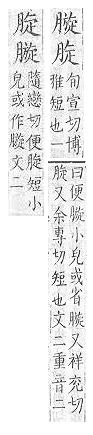 旬宣切博
雅短也一
曰便小皃或省又祥兖切
又余專切短也文二重音二
隨戀切便短小
皃或作文二